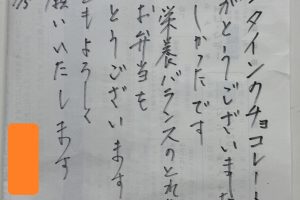 ンタインのチョコレート
がとうございました
しかったです
栄養バランスのとれ
お弁当も
とうございます
もよろしく
願いいたします